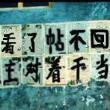 看了帖不回
王对着千当